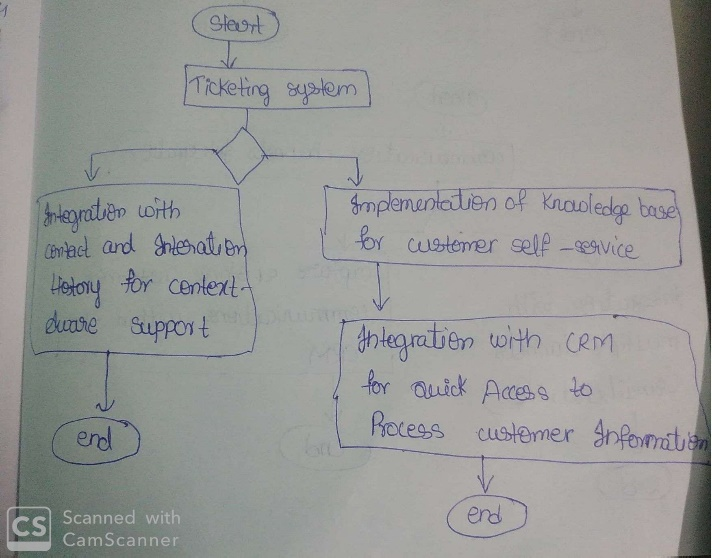 Start
Ticketing system
Integration with
contact and Interation
History for context-
aware support
end
Implementation of Knowledge base
for customer self-service
Integration with CRM
for quick Access to
Process customer Information
end
CS Scanned with
CamScanner